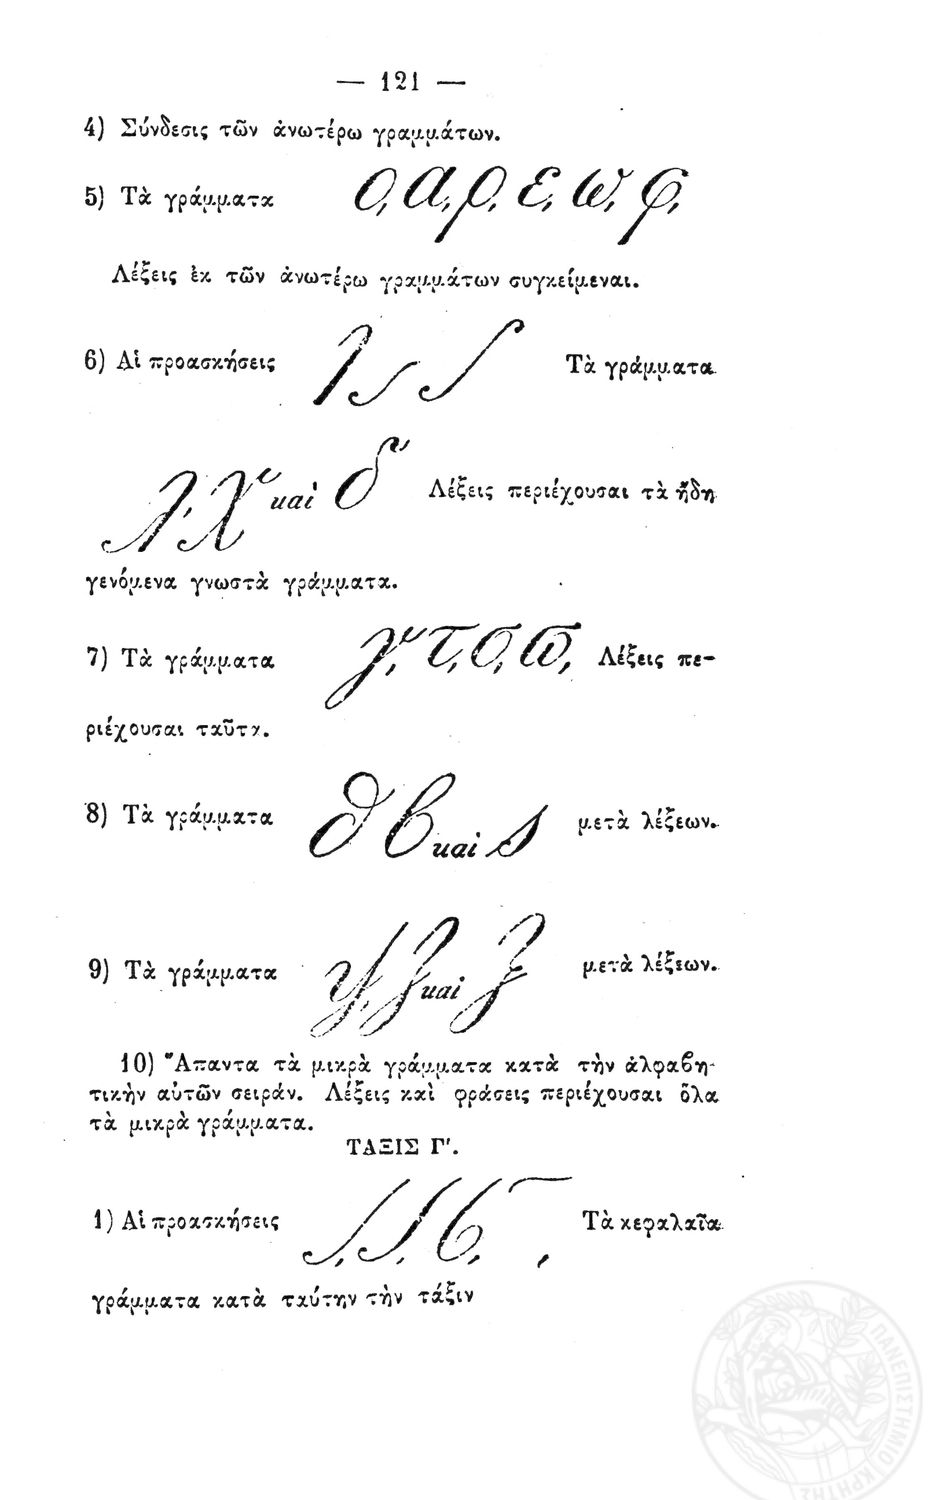 — 121 —
4) Σύνδεσις τῶν ἀνωτέρω γραμμάτων.
5) Τὰ γράμματα ο, α, ρ, ε, ω, φ,
Λέξεις ἐκ τῶν ἀνωτέρω γραμμάτων συγκείμεναι.
6) Αἱ προασκήσεις Τὰ γράμματα
λ, χ καὶ δ Λέξεις περιέχουσαι τὰ ἤδη
γενόμενα γνωστὰ γράμματα.
7) Τὰ γράμματα γ, τ, σ, ϖ, Λέξεις πε-
ριέχουσαι ταῦτα.
8) Τὰ γράμματα θ ϐ καὶ ς μετὰ λέξεων.
9) Τὰ γράμματα ψ, ζ καὶ ξ μετὰ λέξεων.
10) Ἅπαντα τὰ μικρὰ γράμματα κατὰ τὴν ἀλφαϐη-
τικὴν αὐτῶν σειράν. Λέξεις καὶ φράσεις περιέχουσαι ὅλα
τὰ μικρὰ γράμματα.
ΤΑΞΙΣ Γ'.
1) Αἱ προασκήσεις Τὰ κεφαλαῖα
γράμματα κατὰ ταύτην τὴν τάξιν
ΠΑΝΕΠΙΣΤΗΜΙΟ ΚΡΗΤΗΣ